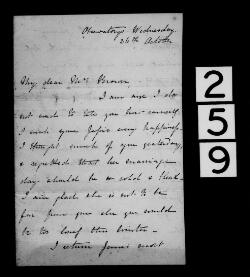 Observatory Wednesday
24th October
My dear Mrs
I am sure I do
not need to tell you how earnestly
I wish your Josie every happiness.
I thought much of you yesterday,
& regretted that her marriage
day should be so cold & bleak.
I am glad she is not to be
far from you else you would
be too lonely this winter.
I return most
2
5
9